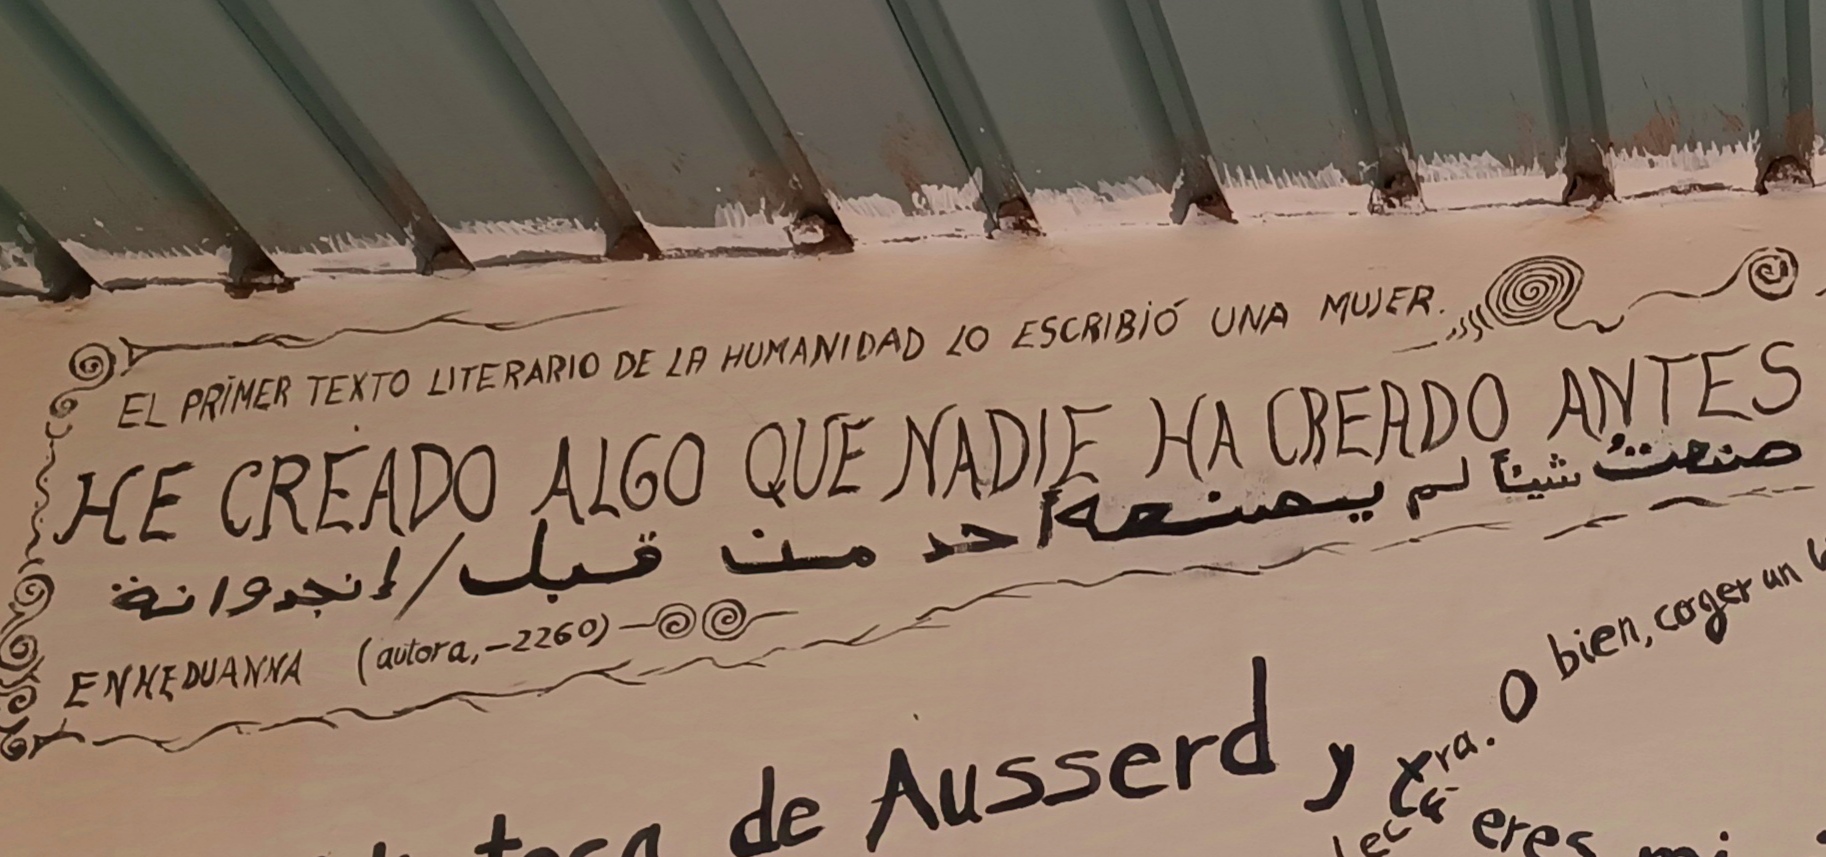 EL PRIMER TEXTO LITERARIO DE LA HUMANIDAD LO ESCRIBIÓ UNA MUJER.
HE CREADO ALGO QUE NADIE HA CREADO ANTES
صنعتُ شيئاً لم يصنعه أحد من قبل / إنجدوانة
ENHEDUANNA (autora, -2260)
de Ausserd y
O bien, coger un
eres mi